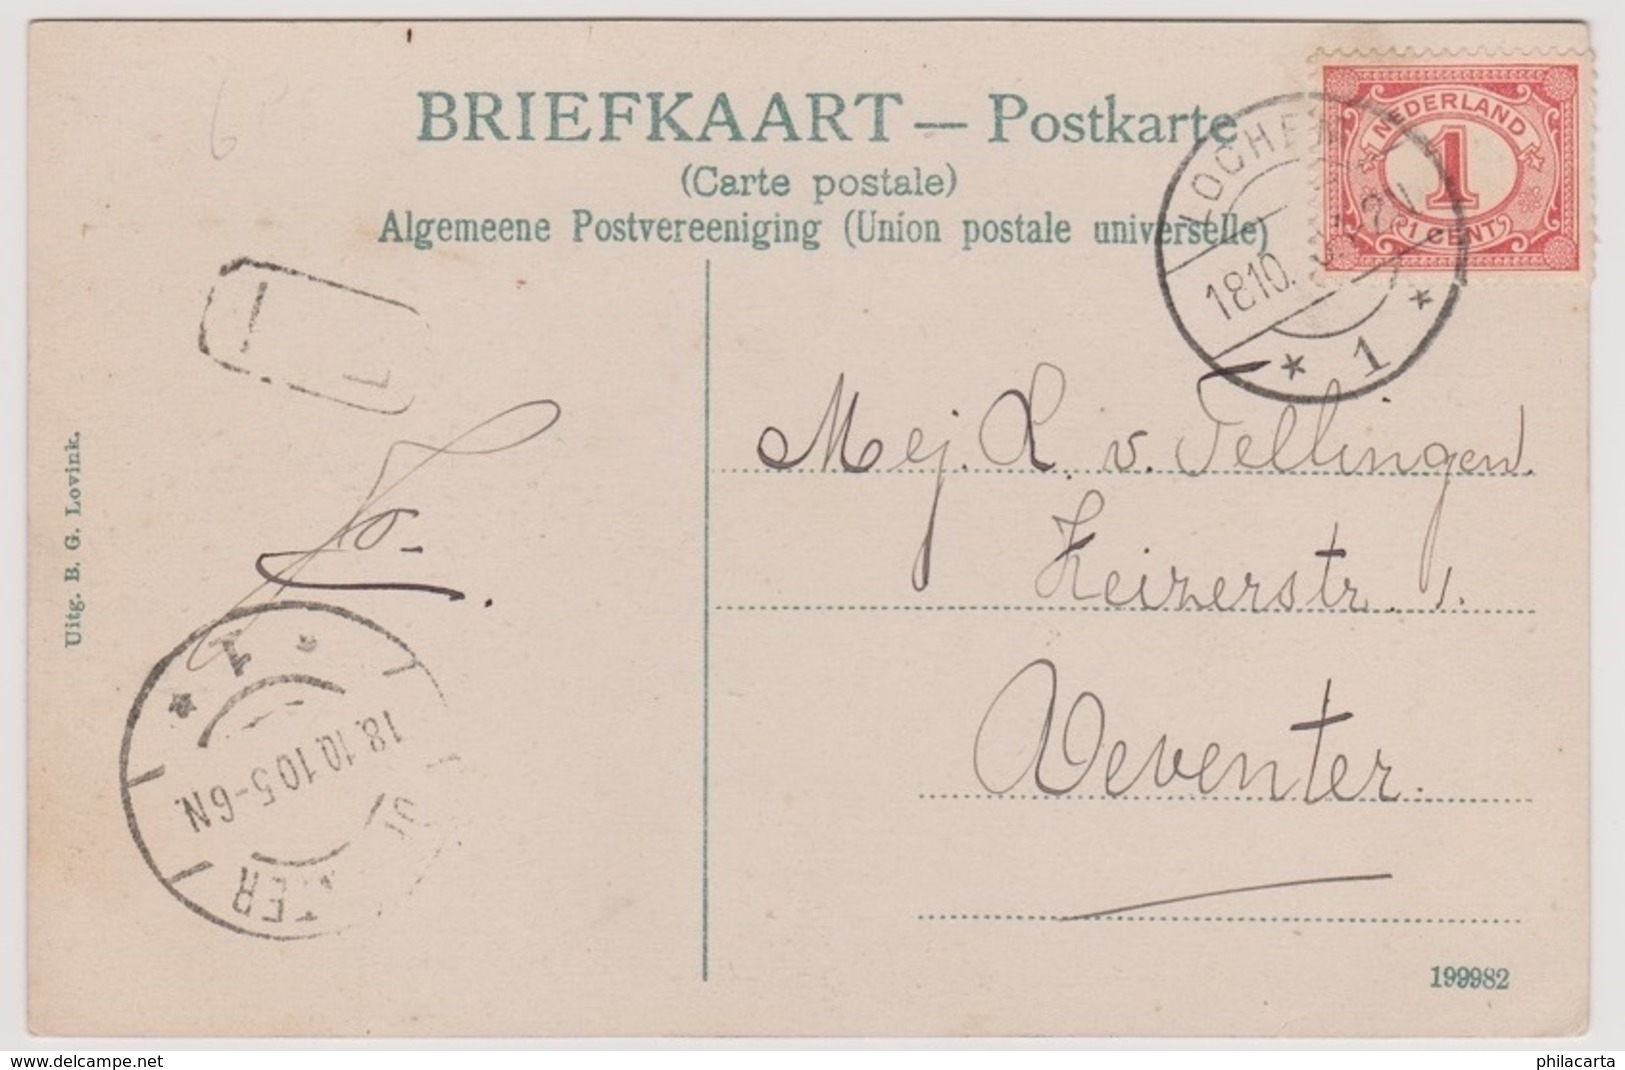 BRIEFKAART — Postkarte
(Carte postale)
Algemeene Postvereeniging (Union postale universelle)
NEDERLAND
1
1 CENT
LOCHEM
18.10.
1
Uitg. B. G. Lovink.
1
18.10.10 5-6N
TER
Mej. L. v. Tellingen.
Keizerstr. 1.
Deventer.
199982
www.delcampe.net
philacarta